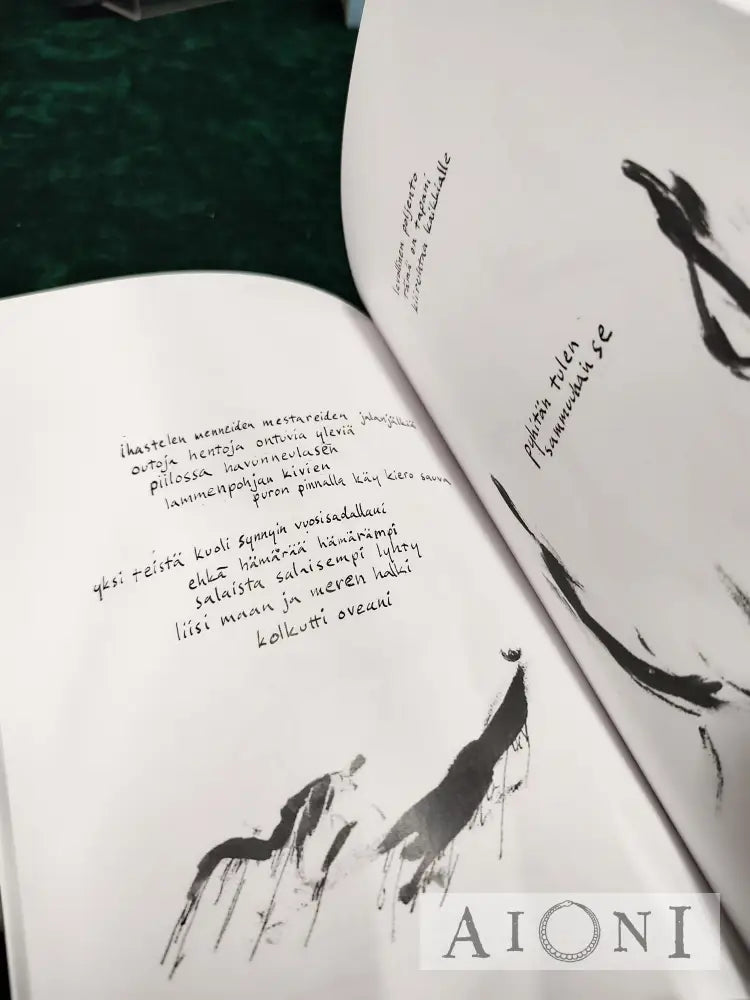 ihastelen menneiden mestareiden jalanjälkiä
outoja hentoja ontuvia yleviä
piilossa havunneulasen
lammenpohjan kivien
puron pinnalla käy kiero sauva
yksi teistä kuoli synnyin vuosisadallani
ehkä hämärää hämärämpi
salaista salaisempi lyhty
liisi maan ja meren halki
kolkutti oveani
levollinen poljento
tämä on tapani
kiiruhtaa kaikkialle
pyhitän tulen
sammuuhan se
AIONI